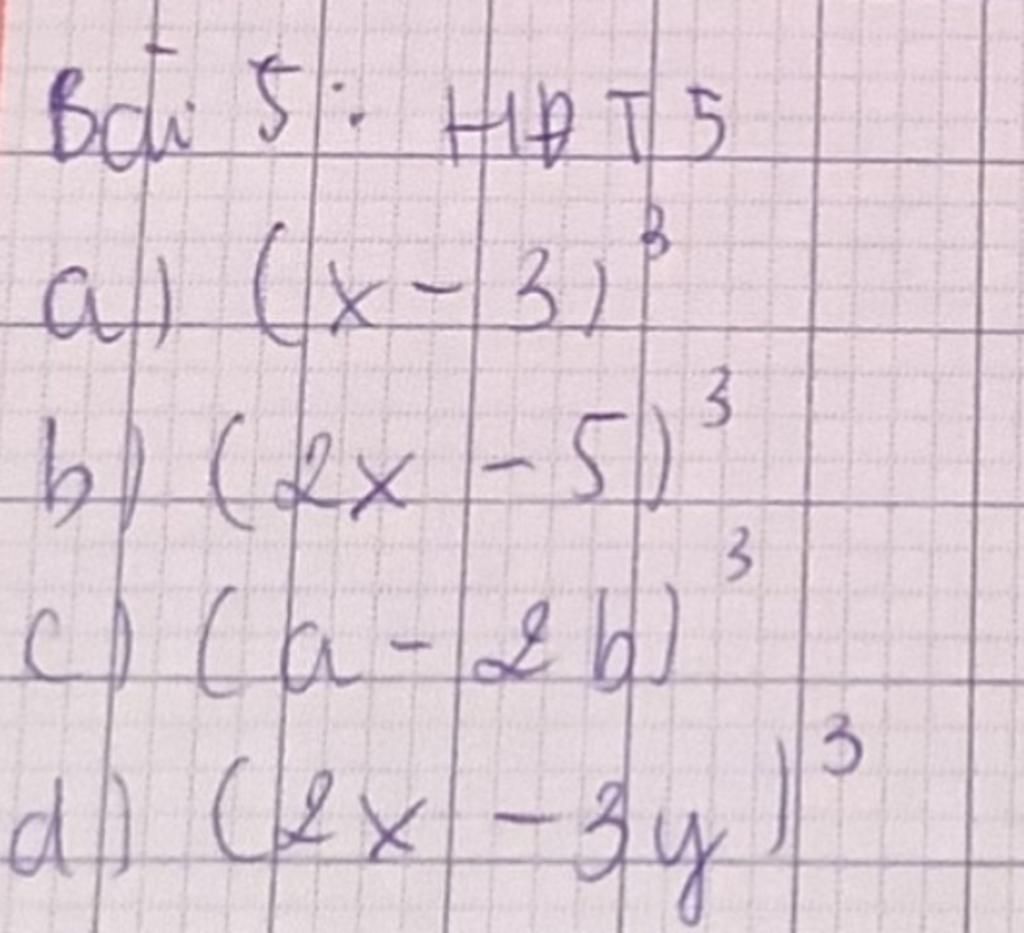 Bài 5: HĐT 5
a) (x - 3)³
b) (2x - 5)³
c) (a - 2b)³
d) (2x - 3y)³